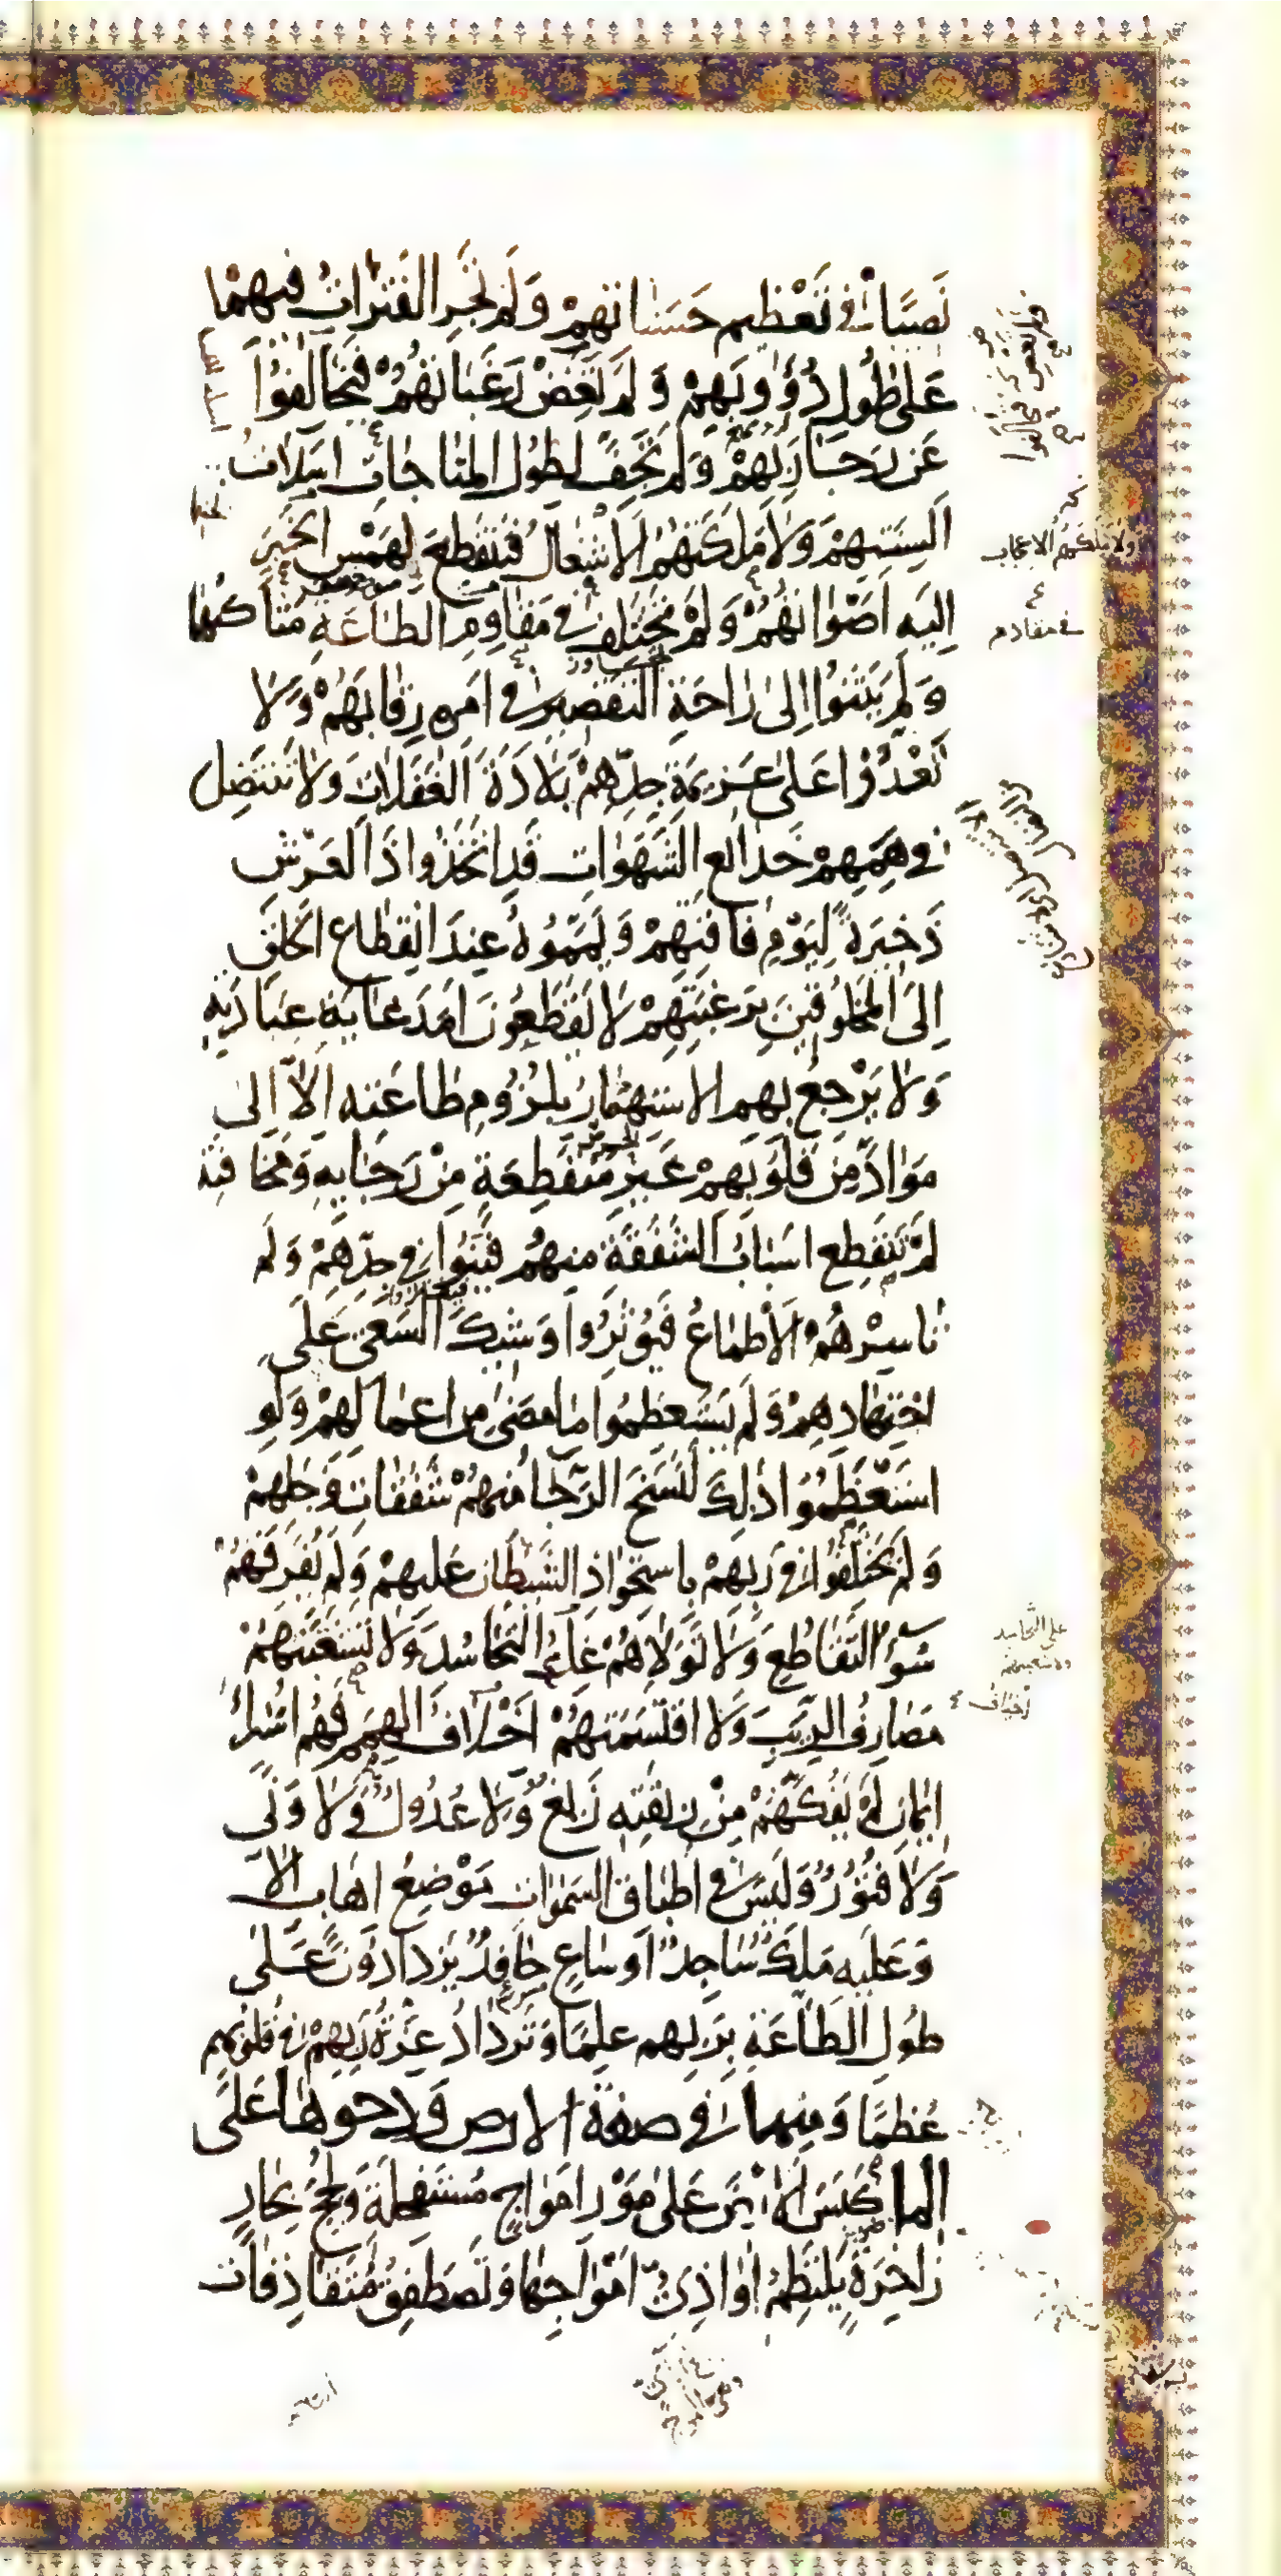 نَصِيبًا فِي تَعْظِيمِ حَسَنَاتِهِمْ وَلَمْ تَجْرِ الْفَتَرَاتُ فِيهِمْ
عَلَى طُولِ دُؤُوبِهِمْ وَلَمْ تَغِضْ رَغَبَاتُهُمْ فَيُخَالِفُوا
عَنْ رَجَاءِ رَبِّهِمْ وَلَمْ تَجِفَّ لِطُولِ الْمُنَاجَاةِ أَسَلَاتُ
أَلْسِنَتِهِمْ وَلَا مَلَكَتْهُمُ الْأَشْغَالُ فَتَنْقَطِعَ بِهَمْسِ الْخَبَرِ
إِلَيْهِ أَصْوَاتُهُمْ وَلَمْ تَخْتَلِفْ فِي مَقَاوِمِ الطَّاعَةِ مَنَاكِبُهُمْ
وَلَمْ يَثْنُوا إِلَى رَاحَةِ التَّقْصِيرِ فِي أَمْرِهِ رِقَابَهُمْ وَلَا
تَعْدُوا عَلَى عَزِيمَةِ جِدِّهِمْ بَلَادَةُ الْغَفَلَاتِ وَلَا تَنْتَضِلُ
فِي هِمَمِهِمْ خَدَائِعُ الشَّهَوَاتِ قَدِ اتَّخَذُوا ذَا الْعَرْشِ
ذَخِيرَةً لِيَوْمِ فَاقَتِهِمْ وَيَمَّمُوهُ عِنْدَ انْقِطَاعِ الْخَلْقِ
إِلَى الْمَخْلُوقِينَ بِرَغْبَتِهِمْ لَا يَقْطَعُونَ أَمَدَ غَايَةِ عِبَادَتِهِ
وَلَا يَرْجِعُ بِهِمُ الِاسْتِهْتَارُ بِلُزُومِ طَاعَتِهِ إِلَّا إِلَى
مَوَادَّ مِنْ قُلُوبِهِمْ غَيْرِ مُنْقَطِعَةٍ مِنْ رَجَائِهِ وَمَخَافَتِهِ
لَمْ تَنْقَطِعْ أَسْبَابُ الشَّفَقَةِ مِنْهُمْ فَيَنُوا فِي جِدِّهِمْ وَلَمْ
تَأْسِرْهُمُ الْأَطْمَاعُ فَيُؤْثِرُوا وَشِيكَ السَّعْيِ عَلَى
اجْتِهَادِهِمْ وَلَمْ يَسْتَعْظِمُوا مَا مَضَى مِنْ أَعْمَالِهِمْ وَلَوِ
اسْتَعْظَمُوا ذَلِكَ لَنَسَخَ الرَّجَاءُ مِنْهُمْ شَفَقَاتِ وَجَلِهِمْ
وَلَمْ يَخْتَلِفُوا فِي رَبِّهِمْ بِاسْتِحْوَاذِ الشَّيْطَانِ عَلَيْهِمْ وَلَمْ يُفَرِّقْهُمْ
سُوءُ التَّقَاطُعِ وَلَا تَوَلَّاهُمْ غِلُّ التَّحَاسُدِ وَلَا تَشَعَّبَتْهُمْ
مَصَارِفُ الرِّيَبِ وَلَا اقْتَسَمَتْهُمْ أَخْيَافُ الْهِمَمِ فَهُمْ أُسَرَاءُ
إِيمَانٍ لَمْ يَفُكَّهُمْ مِنْ رِبْقَتِهِ زَيْغٌ وَلَا عُدُولٌ وَلَا وَنًى
وَلَا فُتُورٌ وَلَيْسَ فِي أَطْبَاقِ السَّمَوَاتِ مَوْضِعُ إِهَابٍ إِلَّا
وَعَلَيْهِ مَلَكٌ سَاجِدٌ أَوْ سَاعٍ حَافِدٌ يَزْدَادُونَ عَلَى
طُولِ الطَّاعَةِ بِرَبِّهِمْ عِلْمًا وَتَزْدَادُ عِزَّةُ رَبِّهِمْ فِي قُلُوبِهِمْ
عُظْمًا وَمِنْهَا فِي صِفَةِ الْأَرْضِ وَدَحْوِهَا عَلَى
الْمَاءِ كَبَسَ الْأَرْضَ عَلَى مَوْرِ أَمْوَاجٍ مُسْتَفْحِلَةٍ وَلُجَجِ بِحَارٍ
زَاخِرَةٍ يَلْتَطِمُ أَوَاذِيُّ أَمْوَاجِهَا وَتَصْطَفِقُ مُتَقَاذِفَاتُ
ولا ملكتهم الاعجاب
في مقادم
على التحاسد
ولا تشعبتهم
أخياف